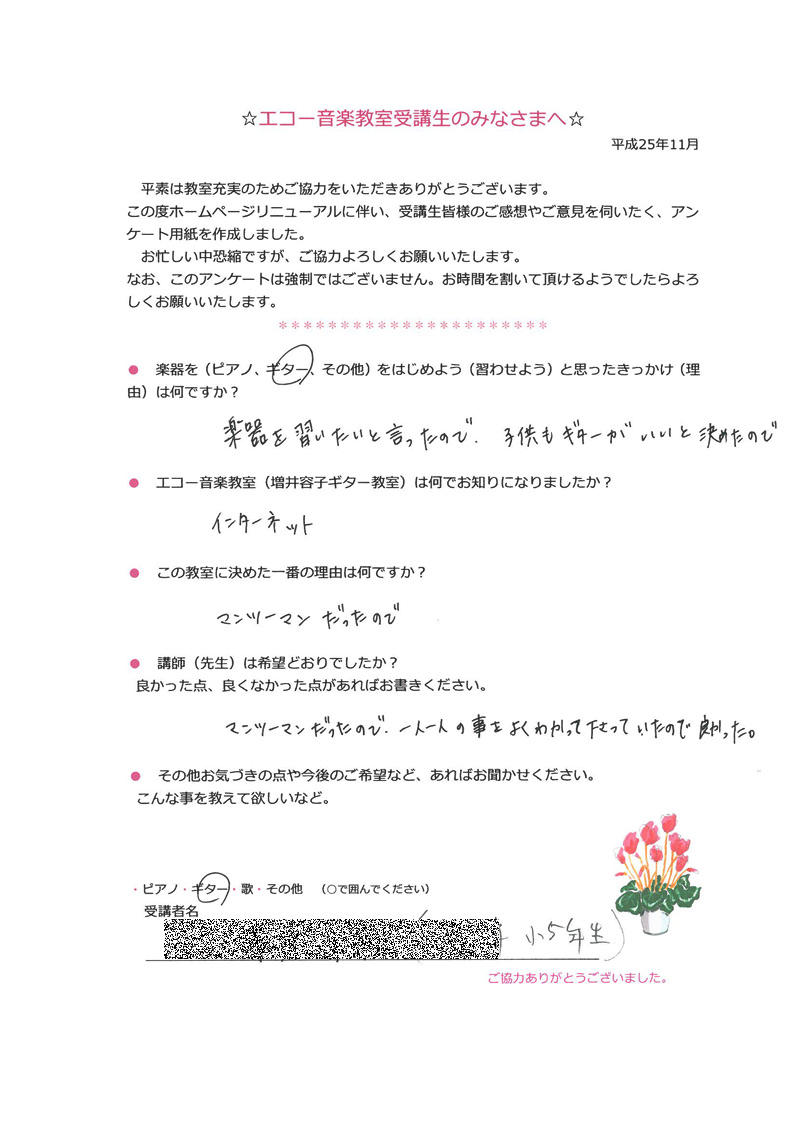 ☆エコー音楽教室受講生のみなさまへ☆
平成25年11月
平素は教室充実のためご協力をいただきありがとうございます。
この度ホームページリニューアルに伴い、受講生皆様のご感想やご意見を伺いたく、アン
ケート用紙を作成しました。
お忙しい中恐縮ですが、ご協力よろしくお願いいたします。
なお、このアンケートは強制ではございません。お時間を割いて頂けるようでしたらよろ
しくお願いいたします。
**********************
● 楽器を（ピアノ、ギター、その他）をはじめよう（習わせよう）と思ったきっかけ（理
由）は何ですか？
楽器を習いたいと言ったので、子供もギターがいいと決めたので
● エコー音楽教室（増井容子ギター教室）は何でお知りになりましたか？
インターネット
● この教室に決めた一番の理由は何ですか？
マンツーマンだったので
● 講師（先生）は希望どおりでしたか？
良かった点、良くなかった点があればお書きください。
マンツーマンだったので、一人一人の事をよくわかって下さっていたので良かった。
● その他お気づきの点や今後のご希望など、あればお聞かせください。
こんな事を教えて欲しいなど。
・ピアノ・ギター・歌・その他 （○で囲んでください）
受講者名
小5年生）
ご協力ありがとうございました。